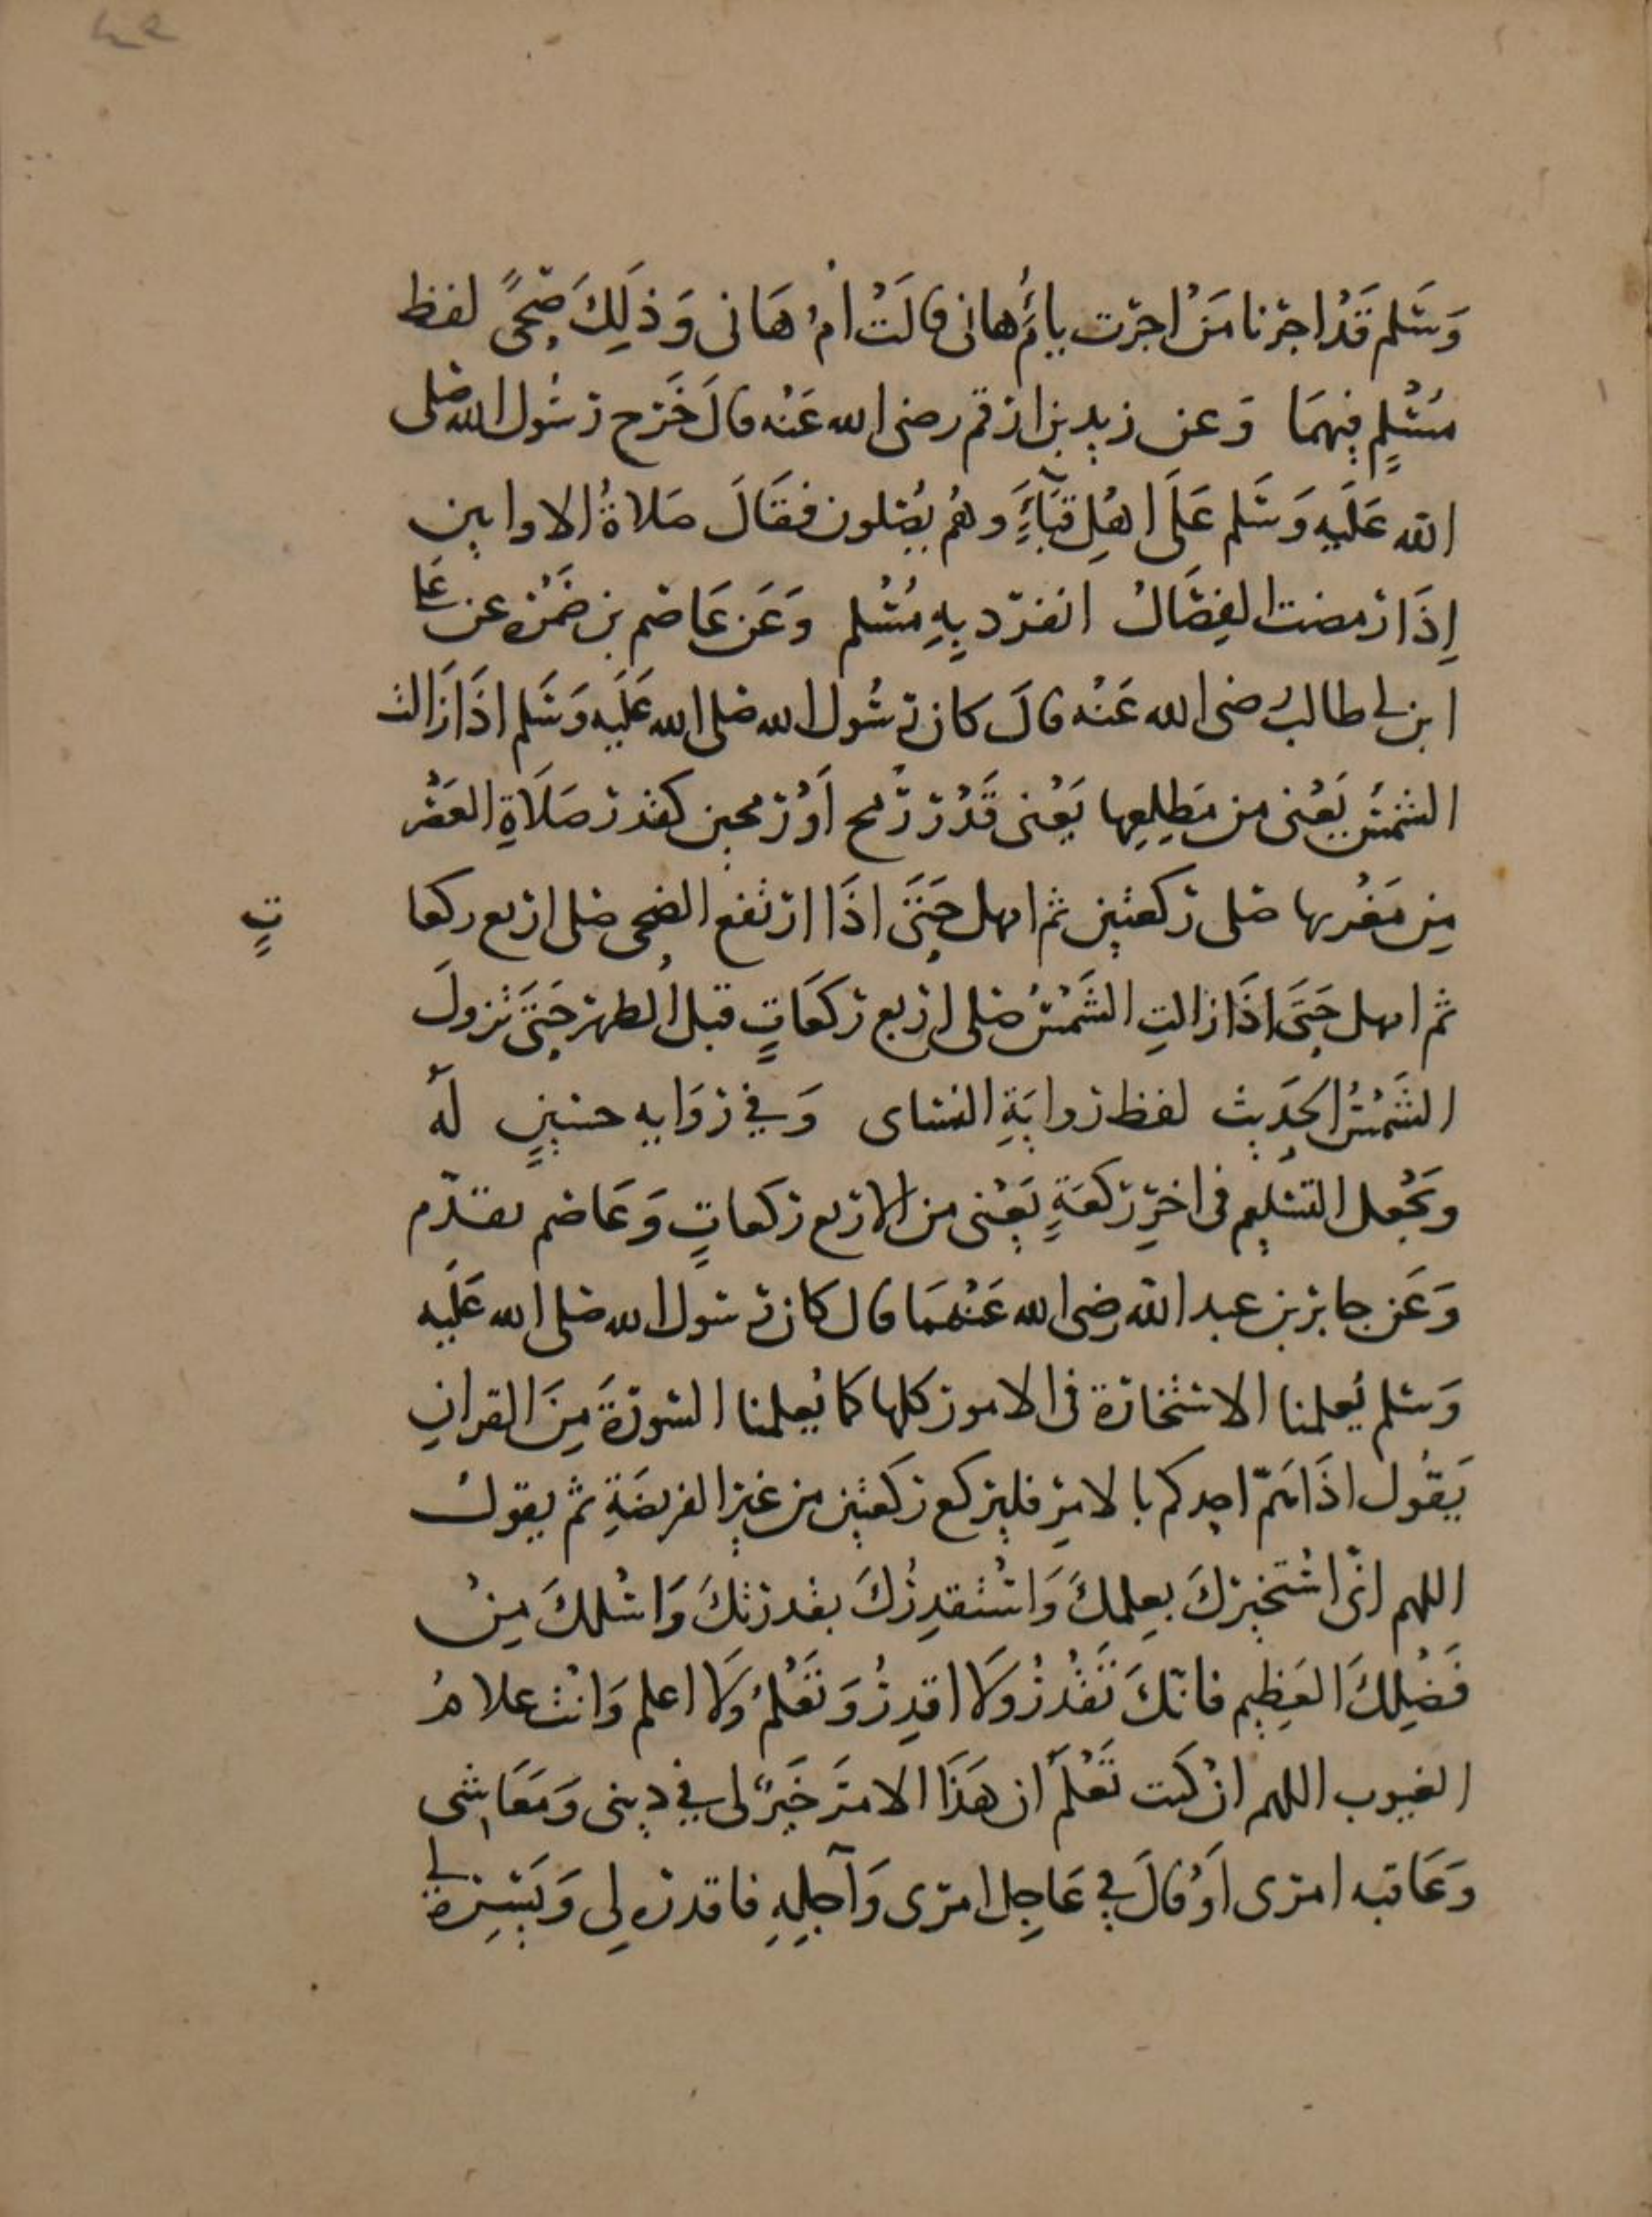 وَسَلم قَدْ اجرْنا مَنْ اجرْت يا أُمَّ هانى قالَتْ أمُ هَانى وَذلِكَ ضُحىً لفظ
مسْلمٍ فيهمَا وَعن زيد بن ارقم رضى الله عَنْه قالَ خَرَج رسُول الله صلى
الله عَلَيهِ وَسَلم عَلَى اهْلِ قبَآءٍ وهُم يُصَلون فقَالَ صَلاةُ الاوابين
إِذَا رمضت الفِصَالُ انفرّد بِهِ مُسْلم وَعَن عَاصم بن ضَمْرَه عن على
ابن ابى طالب رضى الله عَنْه قالَ كان رسُول الله صلى الله عَلَيه وَسَلم اذَا زَالت
الشمسُ يَعْنى من مَطلِعِها يَعْنى قَدْر رُمح أَوْ رُمحين كقدر صَلَاةِ العَصْر
مِن مَغْربها صَلى ركعتين ثم امهل حَتَى اذَا ارتفع الضحى صَلى اربع ركعا
تٍ
ثم امهل حَتَى اذَا زالتِ الشَمْسُ صَلى اربع ركعَاتٍ قبل الظهر حَتىَ تزولَ
الشَمْسُ الحَدِيث لفظ روايَةِ النساى وَفي رِوَايه حسنينٍ لَهُ
ويَجْعل التسْليم فى اخرِ ركعَةٍ يَعْنى من الاربع ركعاتٍ وَعَاصم تقدّم
وَعَن جابر بن عبد الله رضى الله عَنْهمَا قال كان رسول الله صلى الله عَلَيه
وَسَلم يُعلمنا الاستخارة فى الامور كلها كما يُعلمنا السورَةَ مِنَ القران
يَقُول اذَا هَمّ احدكم بالامرِ فليركع ركعتين من غيْرِ الفريضَةِ ثم يقولُ
اللهم انّى اسْتخيرك بعِلمكَ وَاسْتقدِرُكَ بقدرَتكَ وَاسْلكَ مِنْ
فَضْلِكَ العَظِيم فانّكَ تَقْدرُ وَلَا اقدِرُ وَتَعْلمُ وَلَا اعلم وَانت علامُ
الغيوب اللهم انْ كنت تَعْلَمُ ان هَذَا الامرَ خَيْرٌ لى في دينى وَمَعَاشى
وَعَاقبه امرى أَوْ قالَ في عَاجِل امرى وَآجِلِهِ فاقدره لى وَيَسِّرهُ لى